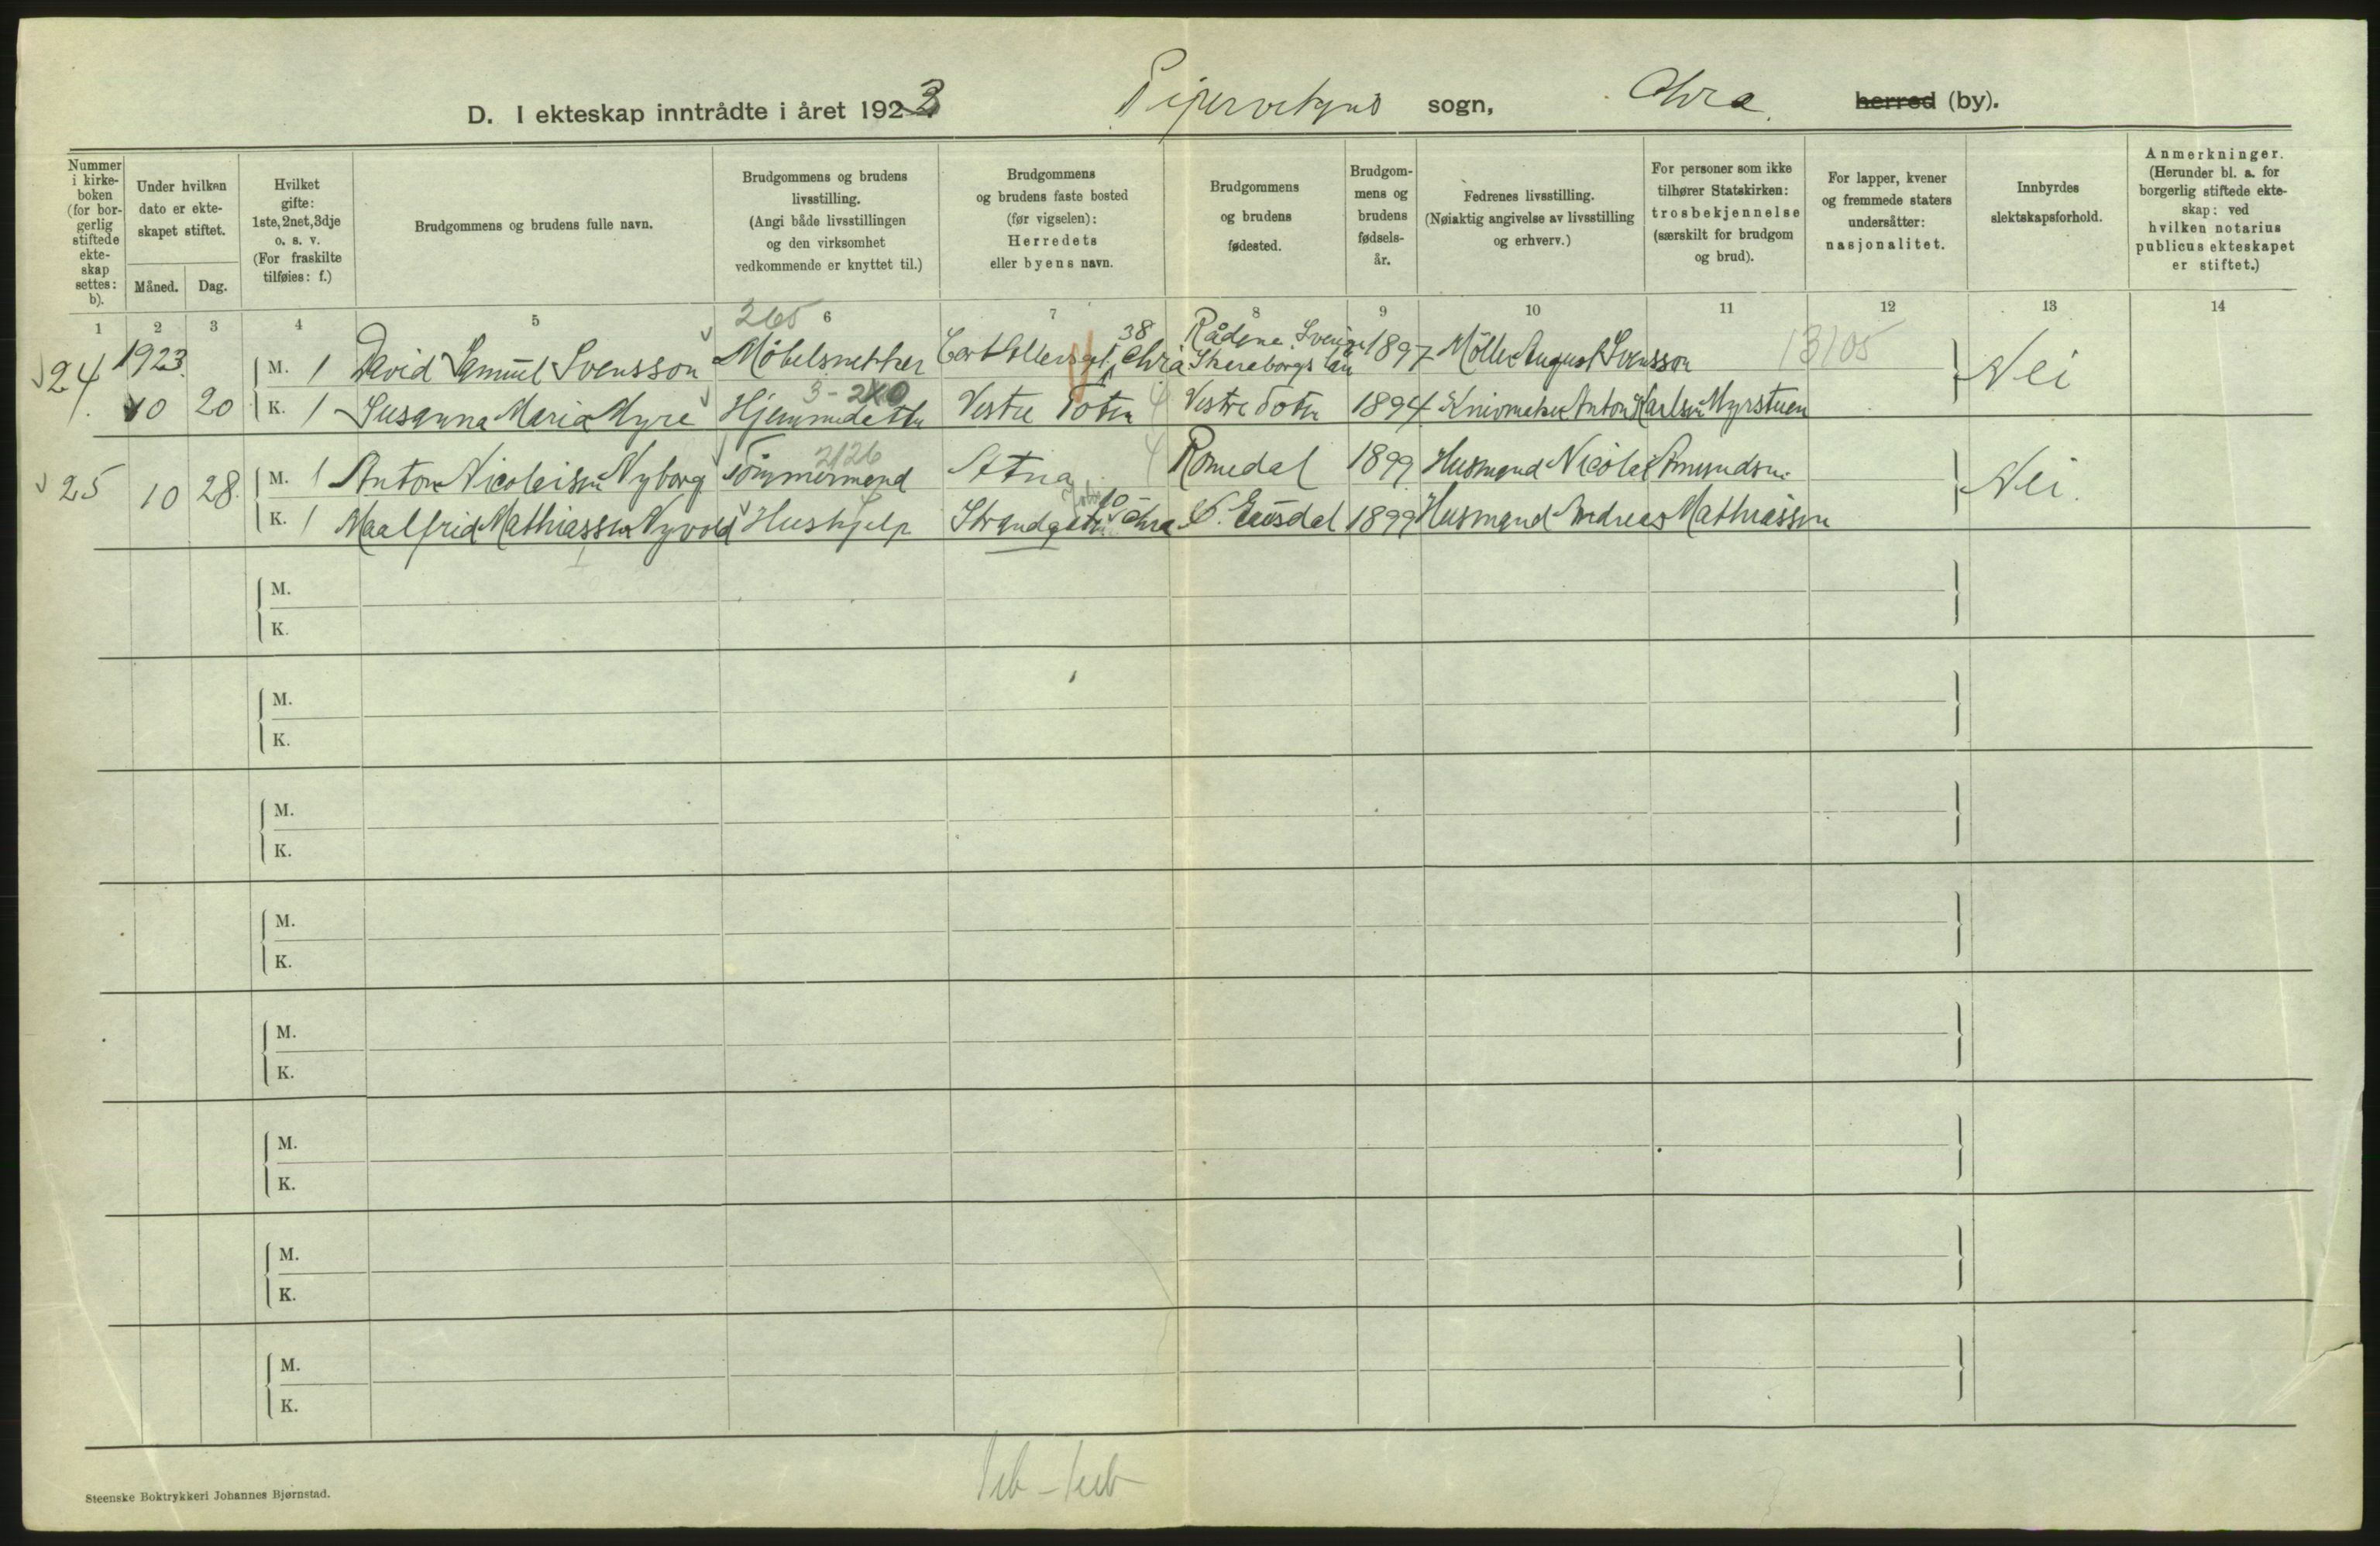 D. I ekteskap inntrådte i året 1923 Pipervikens sogn, Chra. herred (by).
Nummer i kirke-boken (for bor-gerlig stiftede ekte-skap settes: b).
Under hvilken dato er ekte-skapet stiftet.
Måned. Dag.
Hvilket gifte: 1ste, 2net, 3dje o. s. v. (For fraskilte tilføies: f.)
Brudgommens og brudens fulle navn.
Brudgommens og brudens livsstilling. (Angi både livsstillingen og den virksomhet vedkommende er knyttet til.)
Brudgommens og brudens faste bosted (før vigselen): Herredets eller byens navn.
Brudgommens og brudens fødested.
Brudgom-mens og brudens fødsels-år.
Fedrenes livsstilling. (Nøiaktig angivelse av livsstilling og erhverv.)
For personer som ikke tilhører Statskirken: trosbekjennelse (særskilt for brudgom og brud).
For lapper, kvener og fremmede staters undersåtter: nasjonalitet.
Innbyrdes slektskapsforhold.
Anmerkninger. (Herunder bl. a. for borgerlig stiftede ekte-skap: ved hvilken notarius publicus ekteskapet er stiftet.)
1 2 3 4 5 6 7 8 9 10 11 12 13 14
265
24 1923. M. 1 David Samuel Svensson Møbelsnekker 38 Chria Sverige Skaraborgs län 1897 Møller August Svensson 13105 Nei
3-240
10 20 K. 1 Susanna Maria Myre Hjemmedatter Vestre Toten Vestre Toten 1894 Anton Karlsen Myrstuen
2126
25 10 28. M. 1 Anton Nicolaisen Nyborg Tømmermand Atna Romedal 1899 Husmand Nicolai Amundsen. Nei.
K. 1 Maalfrid Mathiassen Nyvold Hushjelp Strandgaten 10 Chra 1899 Husmand Andreas Mathiassen
M.
K.
M.
K.
M.
K.
M.
K.
M.
K.
M.
K.
M.
K.
M.
K.
Steenske Boktrykkeri Johannes Bjørnstad.